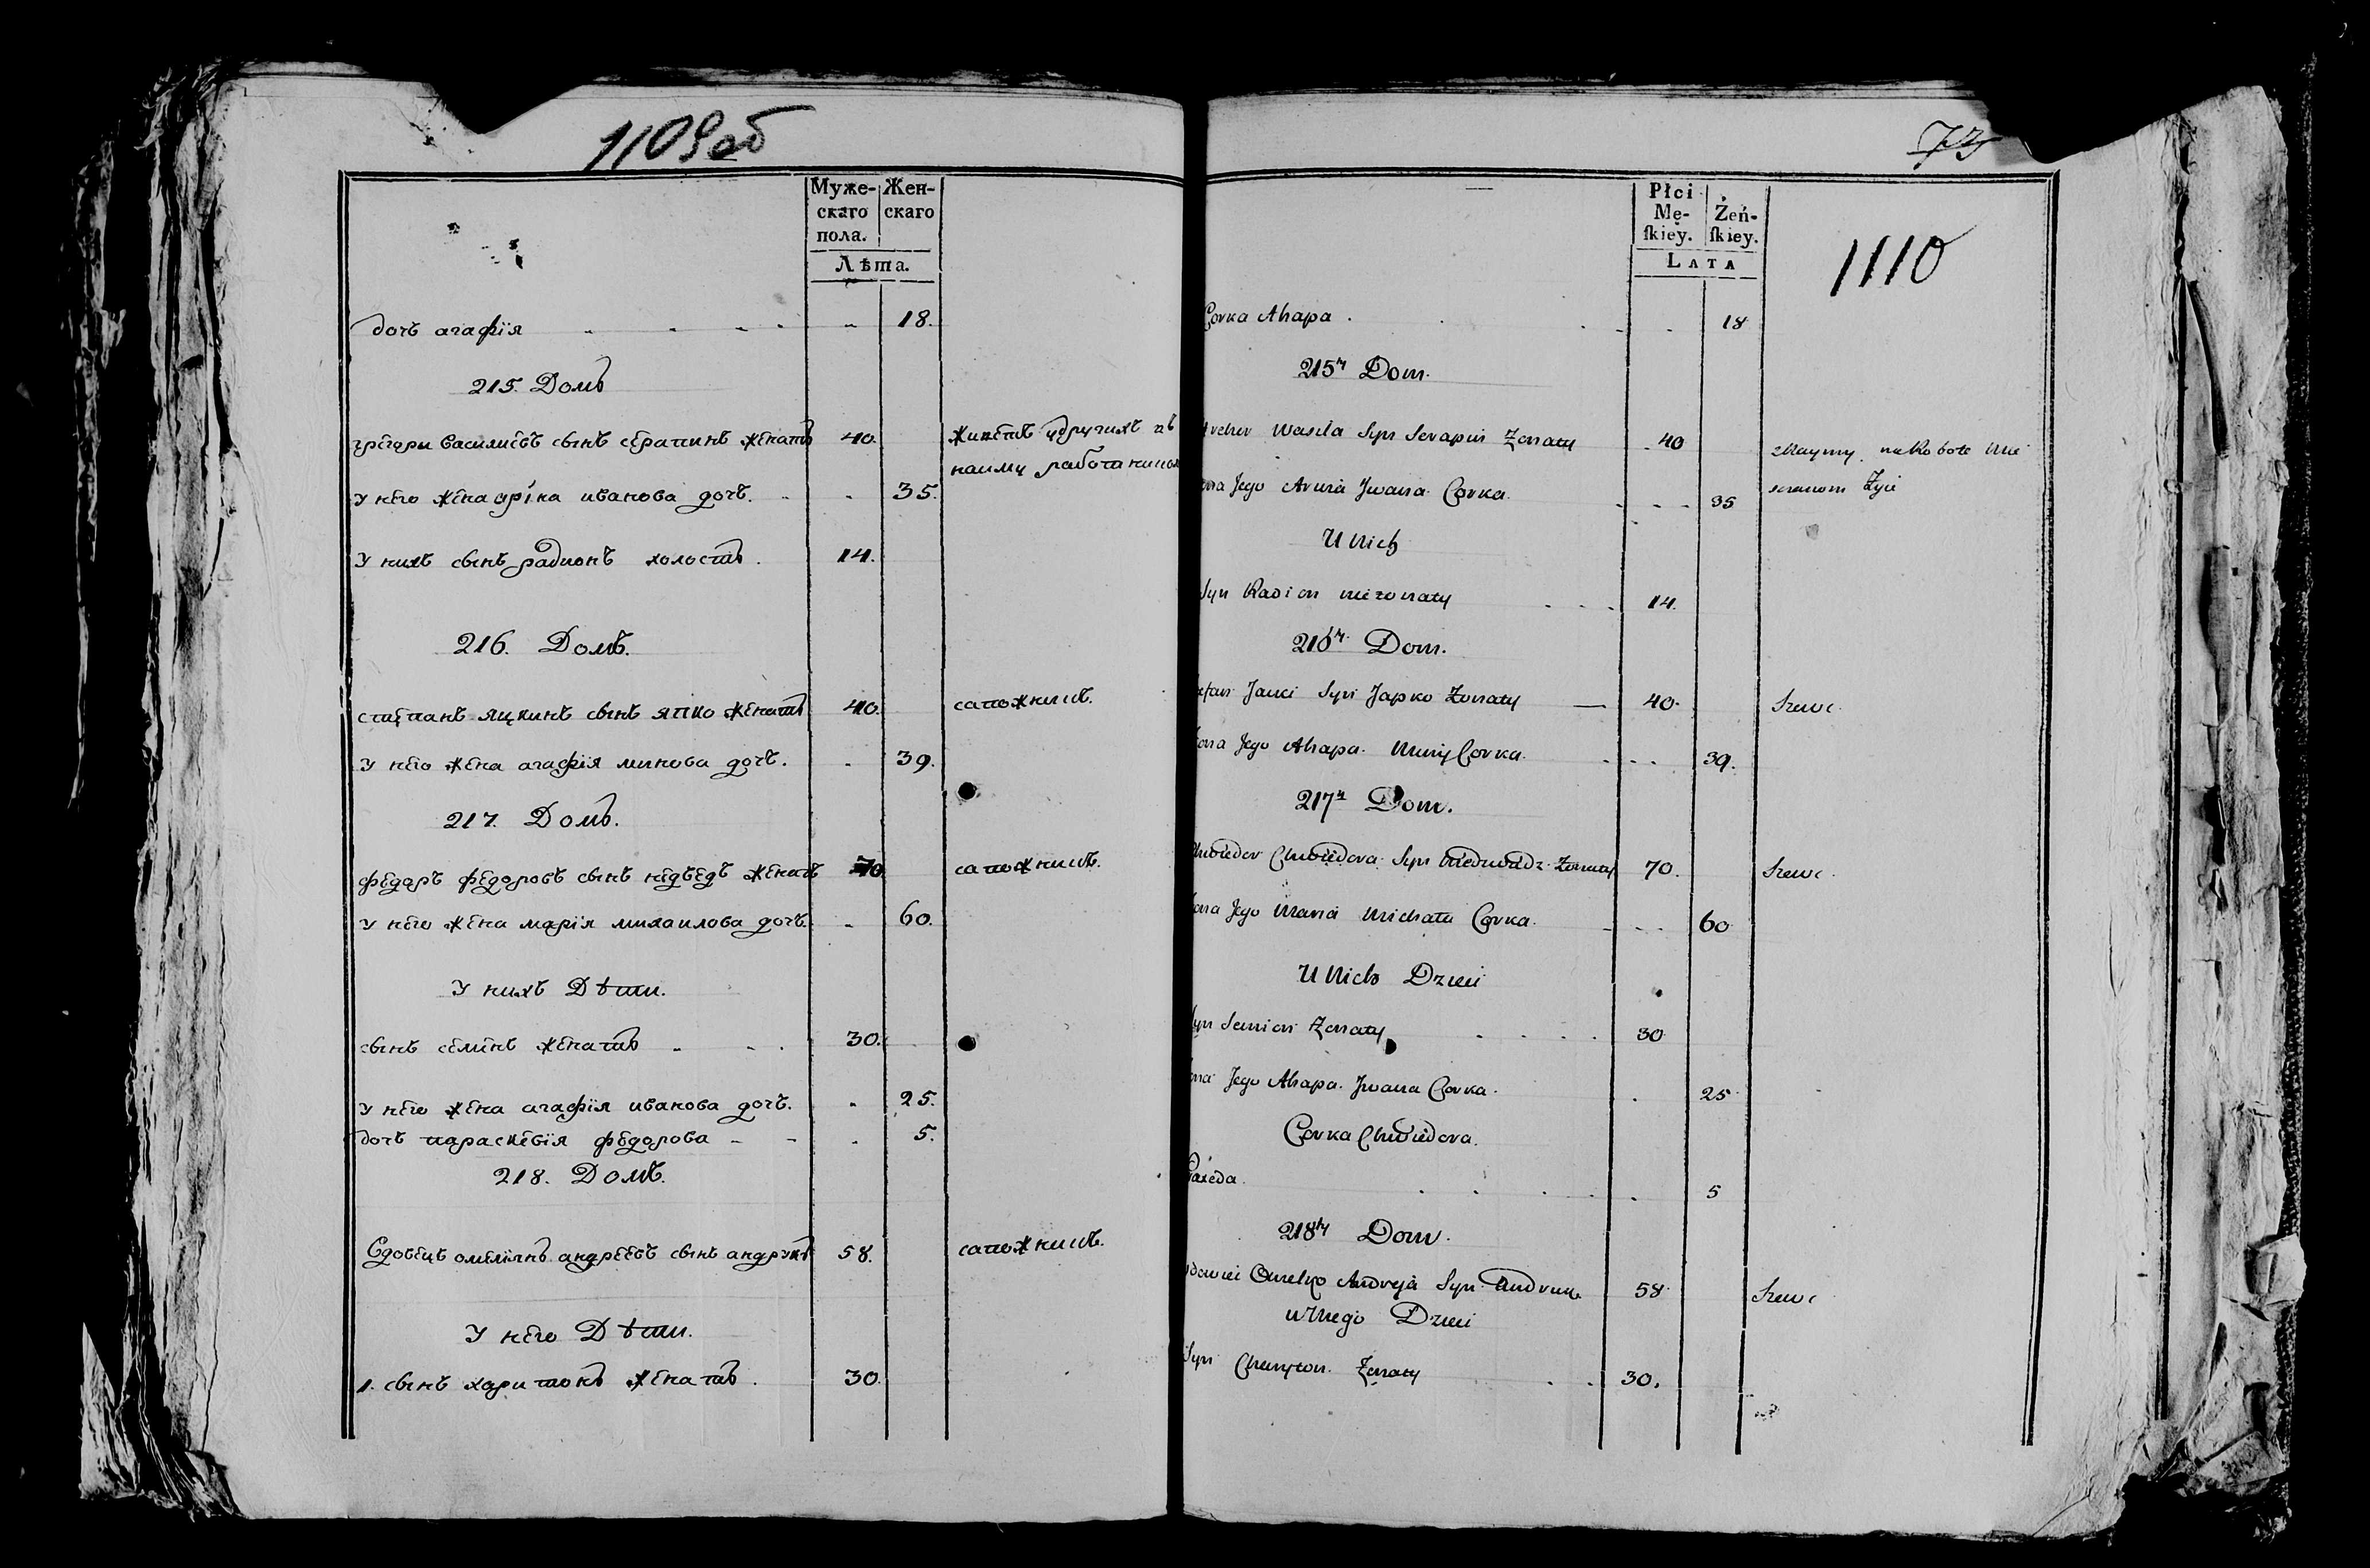 1109об
Муже-
скаго
пола.
Жен-
скаго
Лѣта.
дочъ агафїя 18.
215. Домъ
васимїевъ сынъ серапинъ женатъ 40. работаниюм
у него жена иванова дочъ. 35.
У нихъ сынъ радионъ холостъ. 14.
216. Домъ.
степанъ яцкинъ сынъ япко женатъ 40. сапожникъ.
У него жена агафїя минова дочъ. 39.
217. Домъ.
федаръ федоровъ сынъ недведъ женатъ 70 сапожникъ.
У него жена марїя михаилова дочъ. 60.
У нихъ Дѣти.
сынъ семенъ женатъ 30.
У него жена агафїя иванова дочъ. 25.
дочъ параскевїя федорова 5.
218. Домъ.
вдовецъ омелянъ андреевъ сынъ 58. сапожникъ.
У него Дѣти.
1. сынъ харитонъ женатъ. 30.
73
1110
Płci
Mę-
ſkiey.
Żeń-
ſkiey.
LATA
Corka Ahapa. 18
215ty Dom.
Wasila Syn Serapin Zonaty 40
Jego Jwana Corka. 35
Zyie
U Nich
Syn Radion niezonaty 14.
216ty Dom.
Jacki Syn Japko Zonaty 40. Szewc.
Jego Ahapa. Corka. 39.
217ty Dom.
Chwiedor Chwiedora Syn Niedzwiedz Zonaty 70. Szewc.
Jego Maria Michała Corka. 60
U Nich Dzieci
Syn Semion Zonaty 30
Jego Ahapa. Jwana Corka. 25
Corka Chwiedora.
5
218ty Dom.
Omelko Andreja Syn 58. Szewc
u Niego Dzieci
Syn Charyton. Zonaty 30.